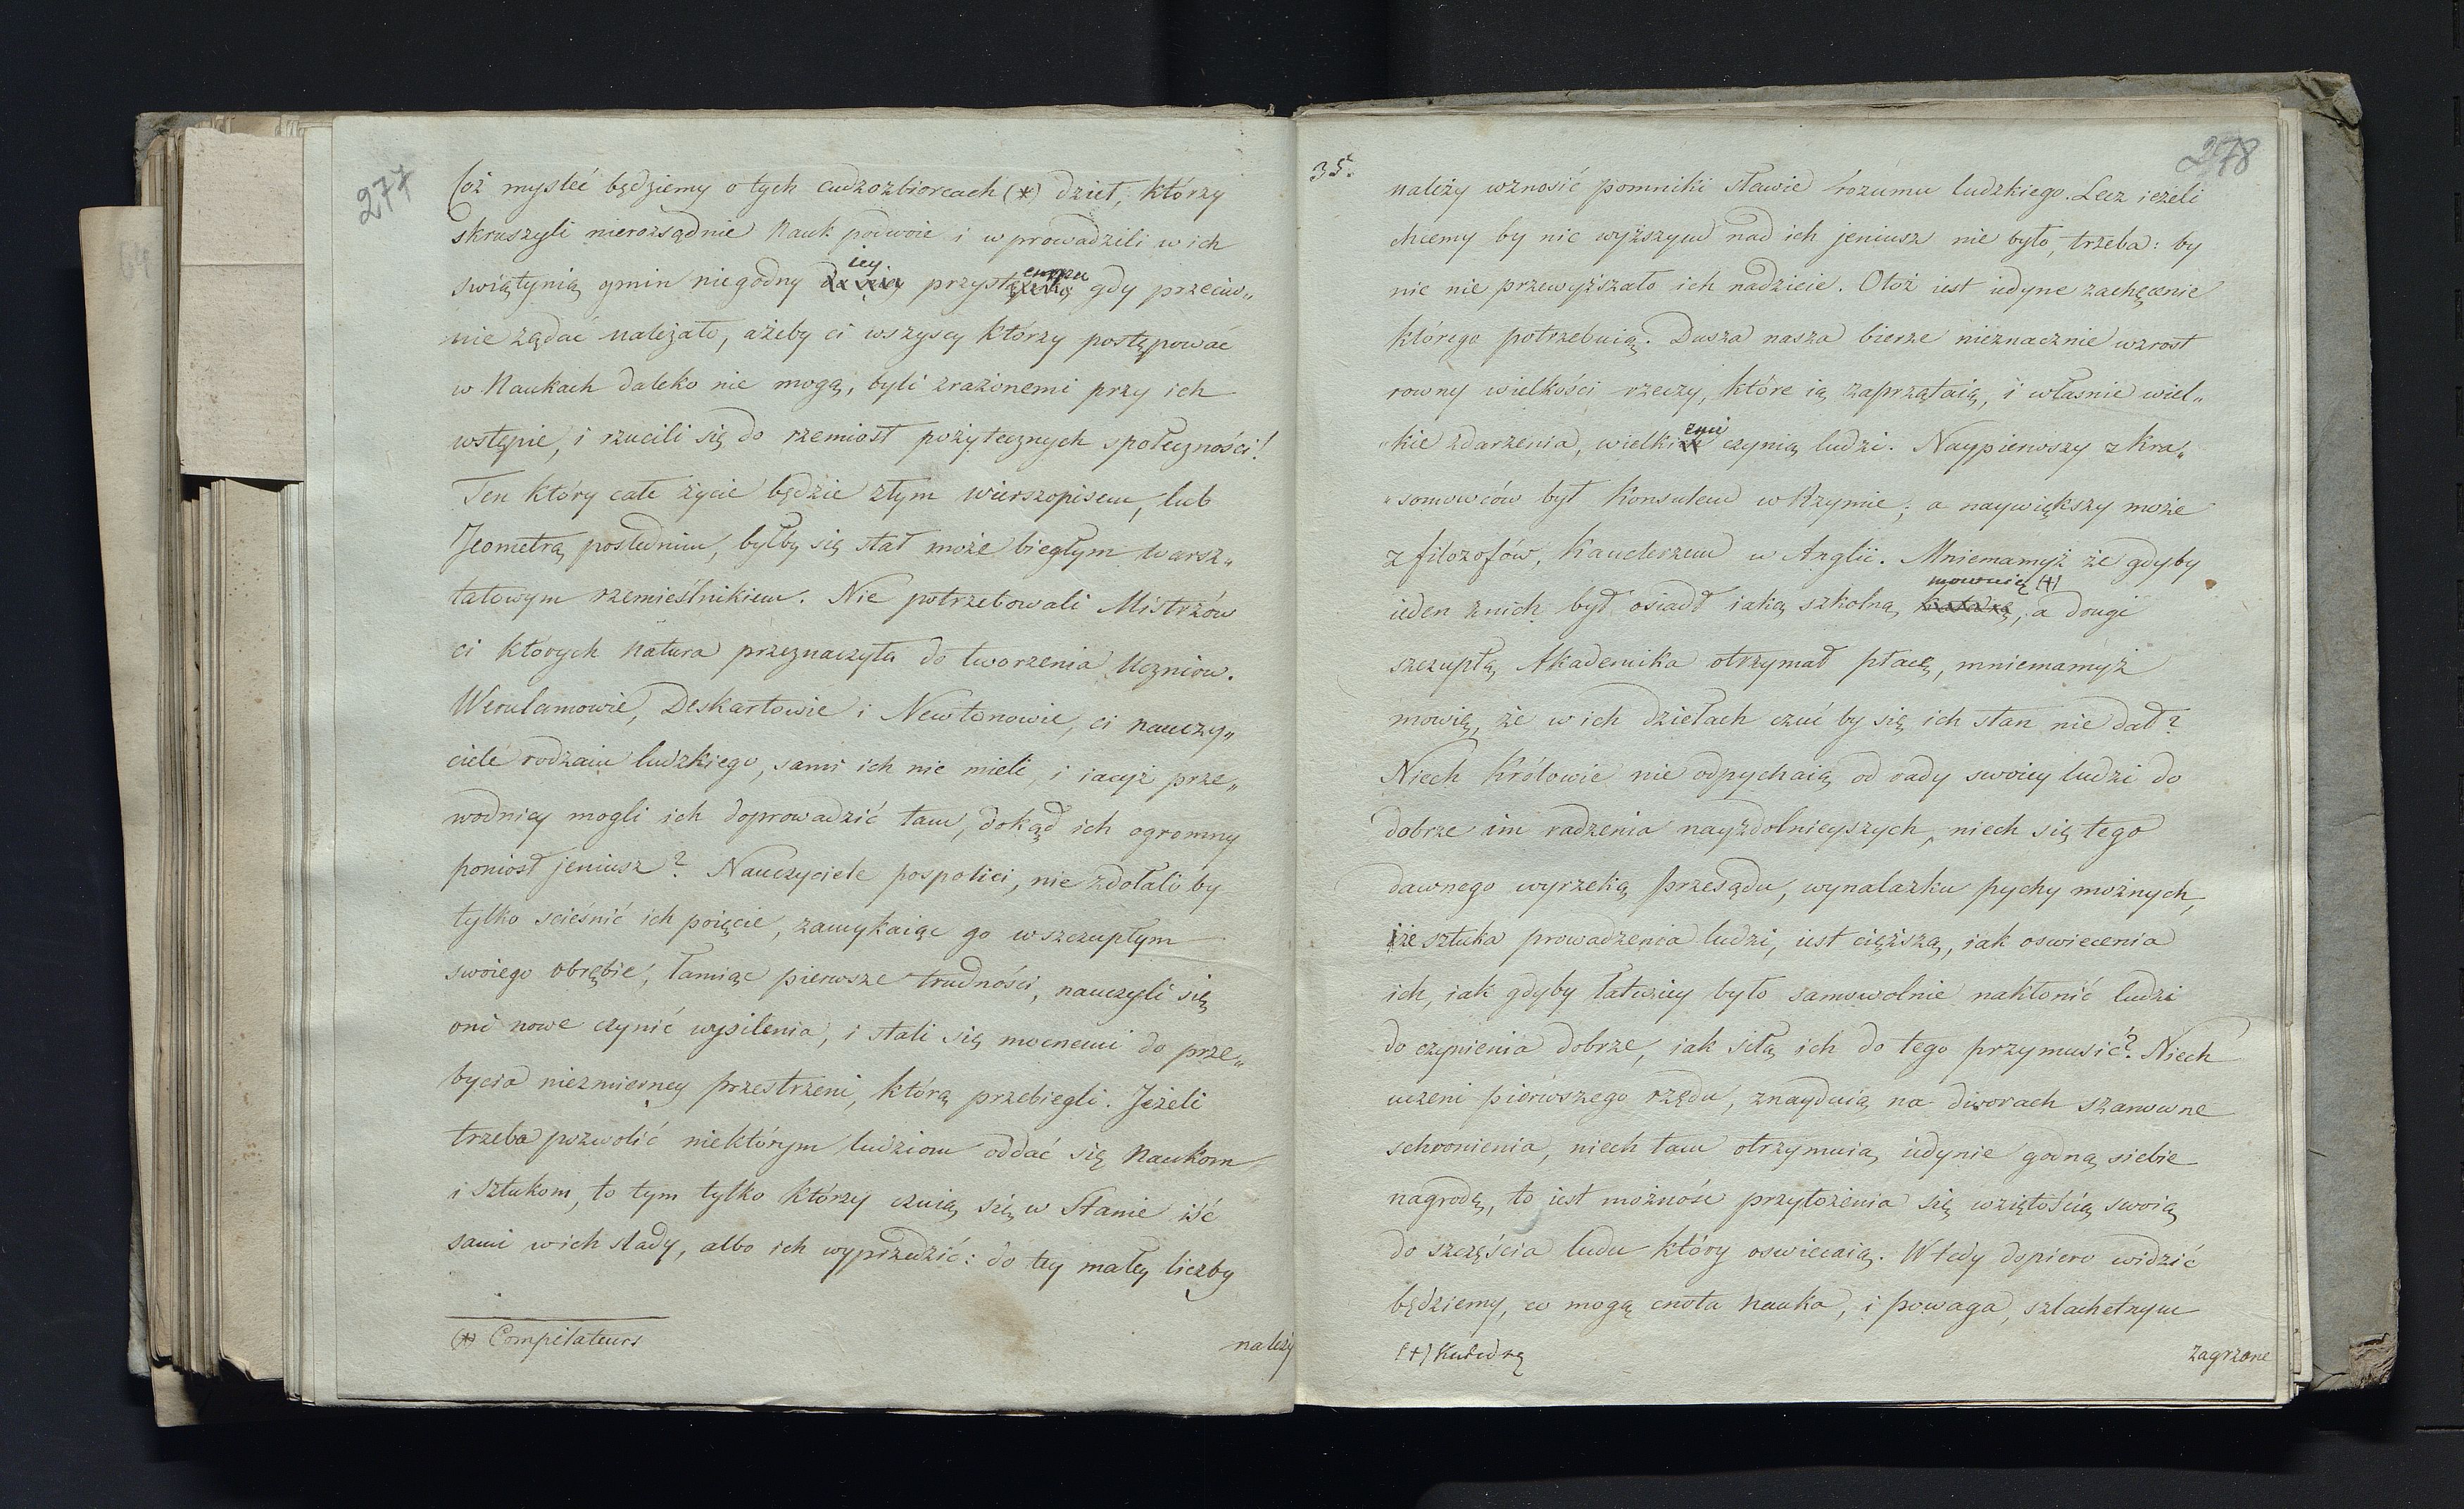 277
Coż mysleć będziemy o tych cudzozbiorcach (*) dzieł, którzy
skruszyli nierozsądnie Nauk podwoie i wprowadzili w ich
iey empu
swiątynią gmin niegodny do nią przystą gdy przeciw„
nie żądać należało, ażeby ci wszyscy którzy postępować
w Naukach daleko nie mogą, byli zrażonemi przy ich
wstępie, i rzucili się do rzemiosł pożytecznych społeczności!
Ten który całe życie będzie złym wierszopisem, lub
Jeometrą poslednim, byłby się stał może biegłym warsz„
tatowym rzemieślnikiem. Nie potrzebowali Mistrzów
ci których Natura przeznaczyła do tworzenia Uczniow.
Werulamowie, Deskartowie i Newtonowie, ci nauczy„
ciele rodzaiu ludzkiego, sami ich nie mieli, i iacyż prze„
wodnicy mogli ich doprowadzić tam, dokąd ich ogromny
poniosł jeniusz? Nauczyciele pospolici, nie zdołali by
tylko scieśnić ich poięcie, zamykaiąc go w szczupłym
swoiego obrębie, łamiąc pierwsze trudności, nauczyli się
oni nowe czynić wysilenia, i stali się mocnemi do prze„
bycia niezmierney przestrzeni, którą przebiegli. Jeżeli
trzeba pozwolić niektórym ludziom oddać się Naukom
i sztukom, to tym tylko którzy czuią się w Stanie iść
sami w ich slady, albo ich wyprzedzić: do tey małey liczby
(*) Compilateurs
należy
35.
278
należy wznosić pomniki sławie rozumu ludzkiego. Lecz ieżeli
chcemy by nic wyższym nad ich jeniusz nie było, trzeba: by
nic nie przewyższało ich nadzieie. Otóż iest iedyne zachęcenie
którego potrzebuią. Dusza nasza bierze nieznacznie wzrost
rowny wielkości rzeczy, które ią zaprzątaią, i własnie wiel„
emi
„kie zdarzenia, wielkie czynią ludzi. Naypierwszy z kra„
„somowców był Konsulem w Rzymie; a naywiększy może
z filozofów, Kanclerzem w Anglii. Mniemamyż że gdyby
mownię (+)
ieden z nich był osiadł iaką szkolną katedrę, a drugi
szczupłą Akademika otrzymał płacę, mniemamyż
mowię, że w ich dziełach czuć by się ich stan nie dał?
Niech Królowie nie odpychaią od rady swoiey ludzi do
dobrze im radzenia nayzdolnieyszych, niech się tego
dawnego wyrzeką przesądu, wynalazku pychy możnych,
iże sztuka prowadzenia ludzi, iest cięższą, iak oswiecenia
ich, iak gdyby łatwiey było samowolnie nakłonić ludzi
do czynienia dobrze, iak siłą ich do tego przymusić? Niech
uczeni pierwszego rzędu, znayduią na dworach szanowne
schronienia, niech tam otrzymuią iedynie godną siebie
nagrodę, to iest możność przyłożenia się wziętością swoią
do szczęścia ludu który oswiecaią. Wtedy dopiero widzić
będziemy, co mogą cnota nauka, i powaga, szlachetnym
(+) Katedrę
zagrzane